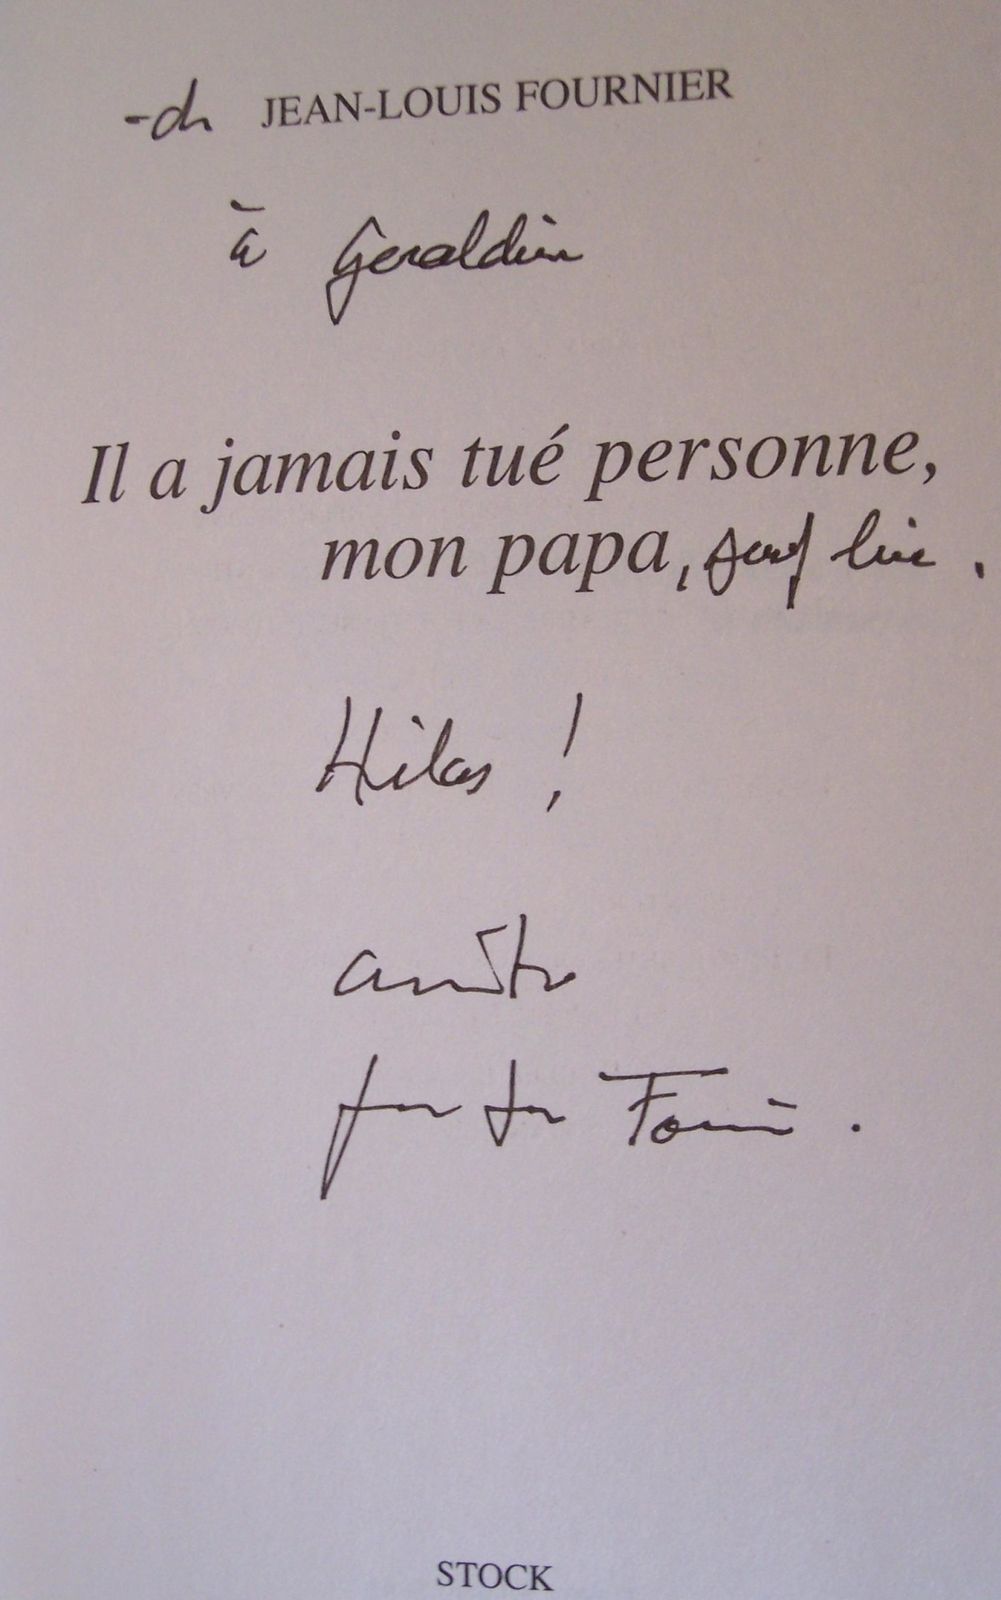 -de JEAN-LOUIS FOURNIER
à Geraldine
Il a jamais tué personne,
mon papa, sauf lui.
Hélas !
amitié
Fournier.
STOCK